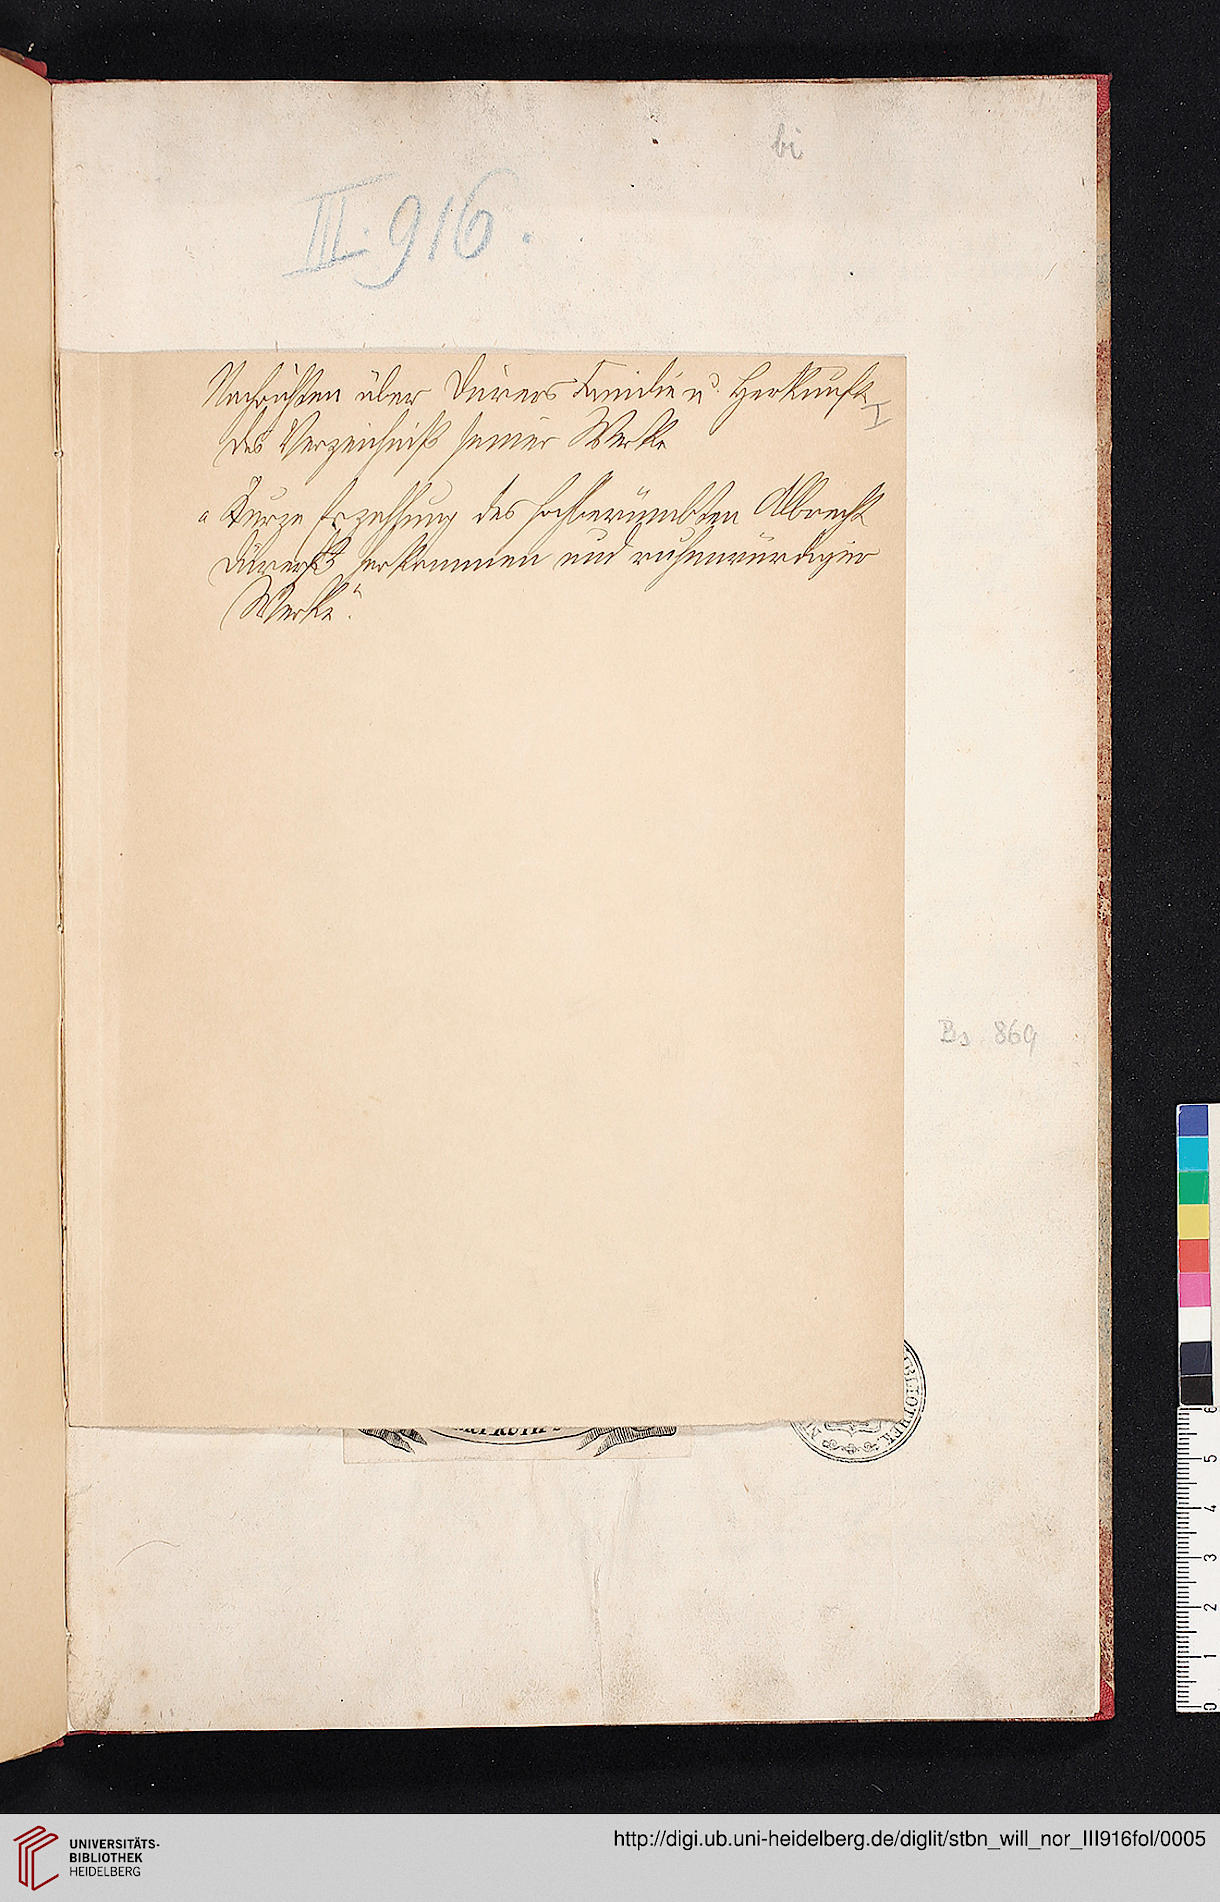 bi
III. 916.
Nachrichten über Dürers Familie u. Herkunft
des Verzeichniß seiner Werke
"Kurze Erzehlung des hochberümbten Albrecht
Dürerß herkommen und ruhmwürdiger
Werke".
Bs 869
BIBLIOTHEK
0 1 2 3 4 5 6
UNIVERSITÄTS-
BIBLIOTHEK
HEIDELBERG
http://digi.ub.uni-heidelberg.de/diglit/stbn_will_nor_III916fol/0005